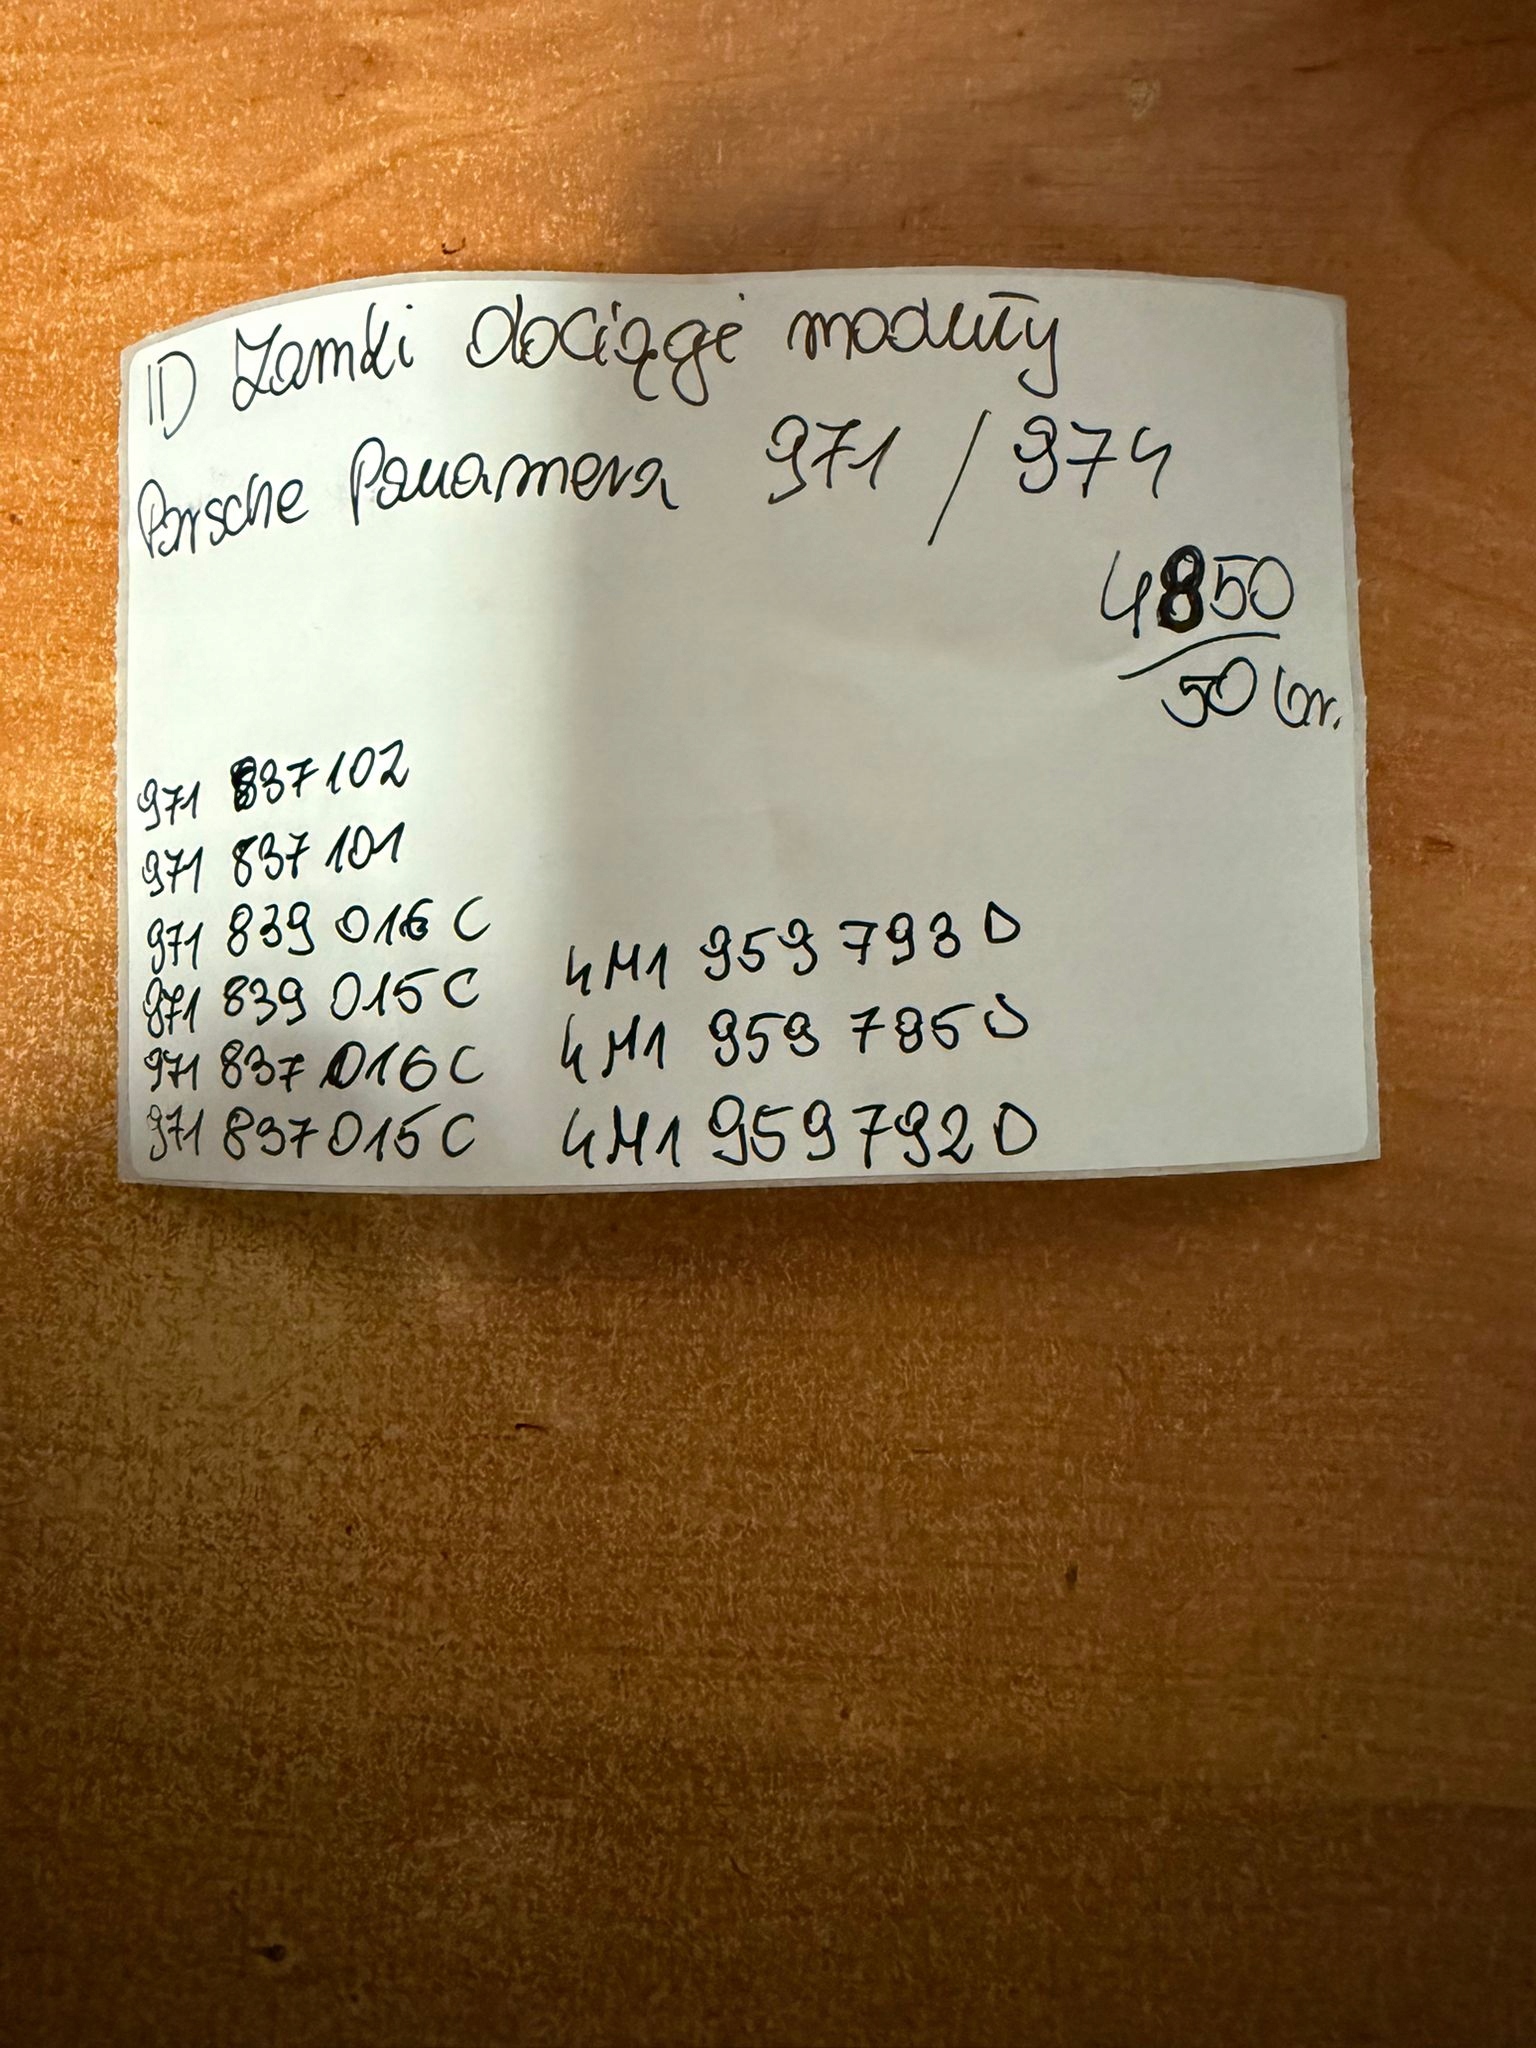 1D Zamki dociągi moduły
Porsche Panamera 971 / 974
4850
50 Gr.
971 837 102
971 837 101
971 839 016 C
971 839 015 C
971 837 016 C
971 837 015 C
4M1 959 793 D
4M1 959 795 D
4M1 959 792 D